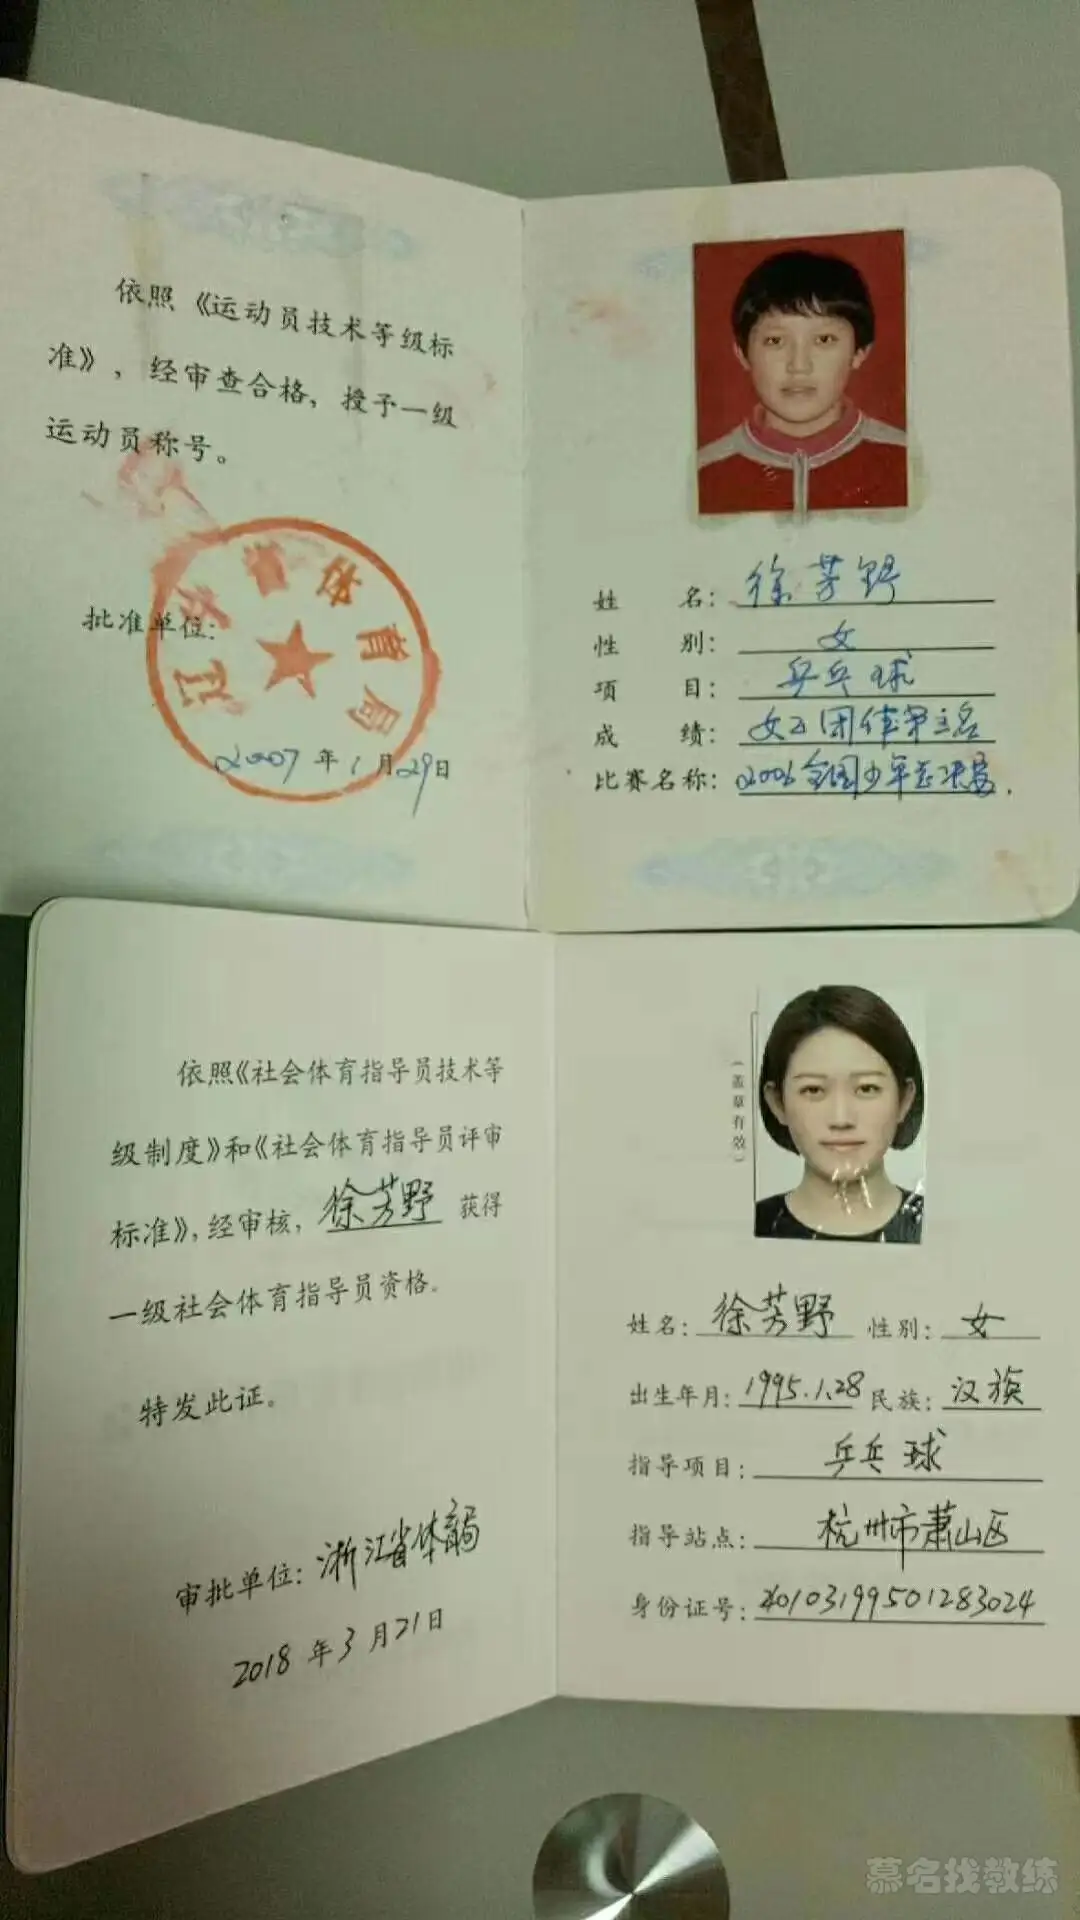 依照《运动员技术等级标
准》，经审查合格，授予一级
运动员称号。
批准单位：
省体育局
2007年1月29日
姓 名：徐芳野
性 别：女
项 目：乒乓球
成 绩：团体第三名
比赛名称：2006全国少年总决赛
依照《社会体育指导员技术等
级制度》和《社会体育指导员评审
标准》，经审核，徐芳野 获得
一级社会体育指导员资格。
特发此证。
审批单位：浙江省体育局
2018年3月21日
（盖章有效）
姓名：徐芳野 性别：女
出生年月：1995.1.28 民族：汉族
指导项目：乒乓球
指导站点：杭州市萧山区
身份证号：
慕名找教练